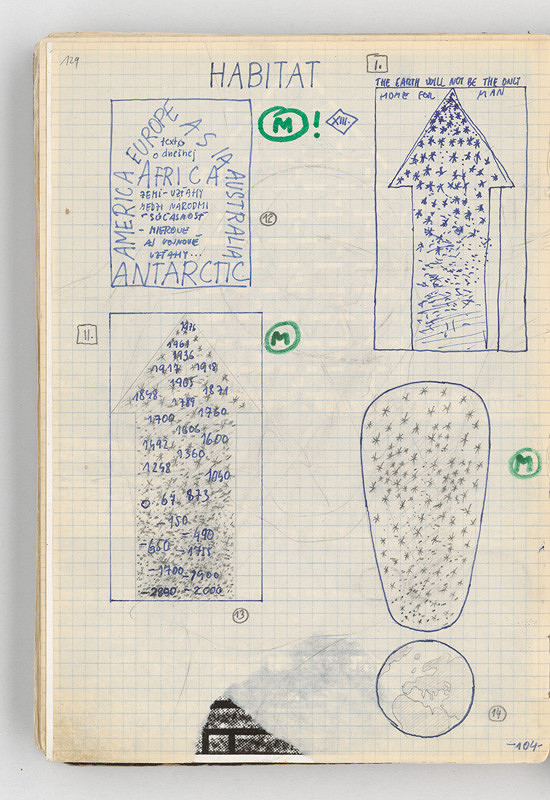 129
HABITAT
I.
THE EARTH WILL NOT BE THE ONLY
HOME FOR MAN
M!
XIII.
EUROPE
ASIA
AMERICA
AUSTRALIA
texto
o dnešnej
AFRICA
ZEMI-VZŤAHY
MEDZI NÁRODMI
SÚČASNOSŤ
- MIEROVÉ
AJ VOJNOVÉ
VZŤAHY...
ANTARCTIC
12
II.
M
1976
1961
1936
1917 1918
1905
1848 1871
1789
1700 1760
1606
1492 1600
1360
1248
1040
0 64 873
-150
-490
-650 -1755
-1700 -1900
-2800 -2000
13
M
14
-104-